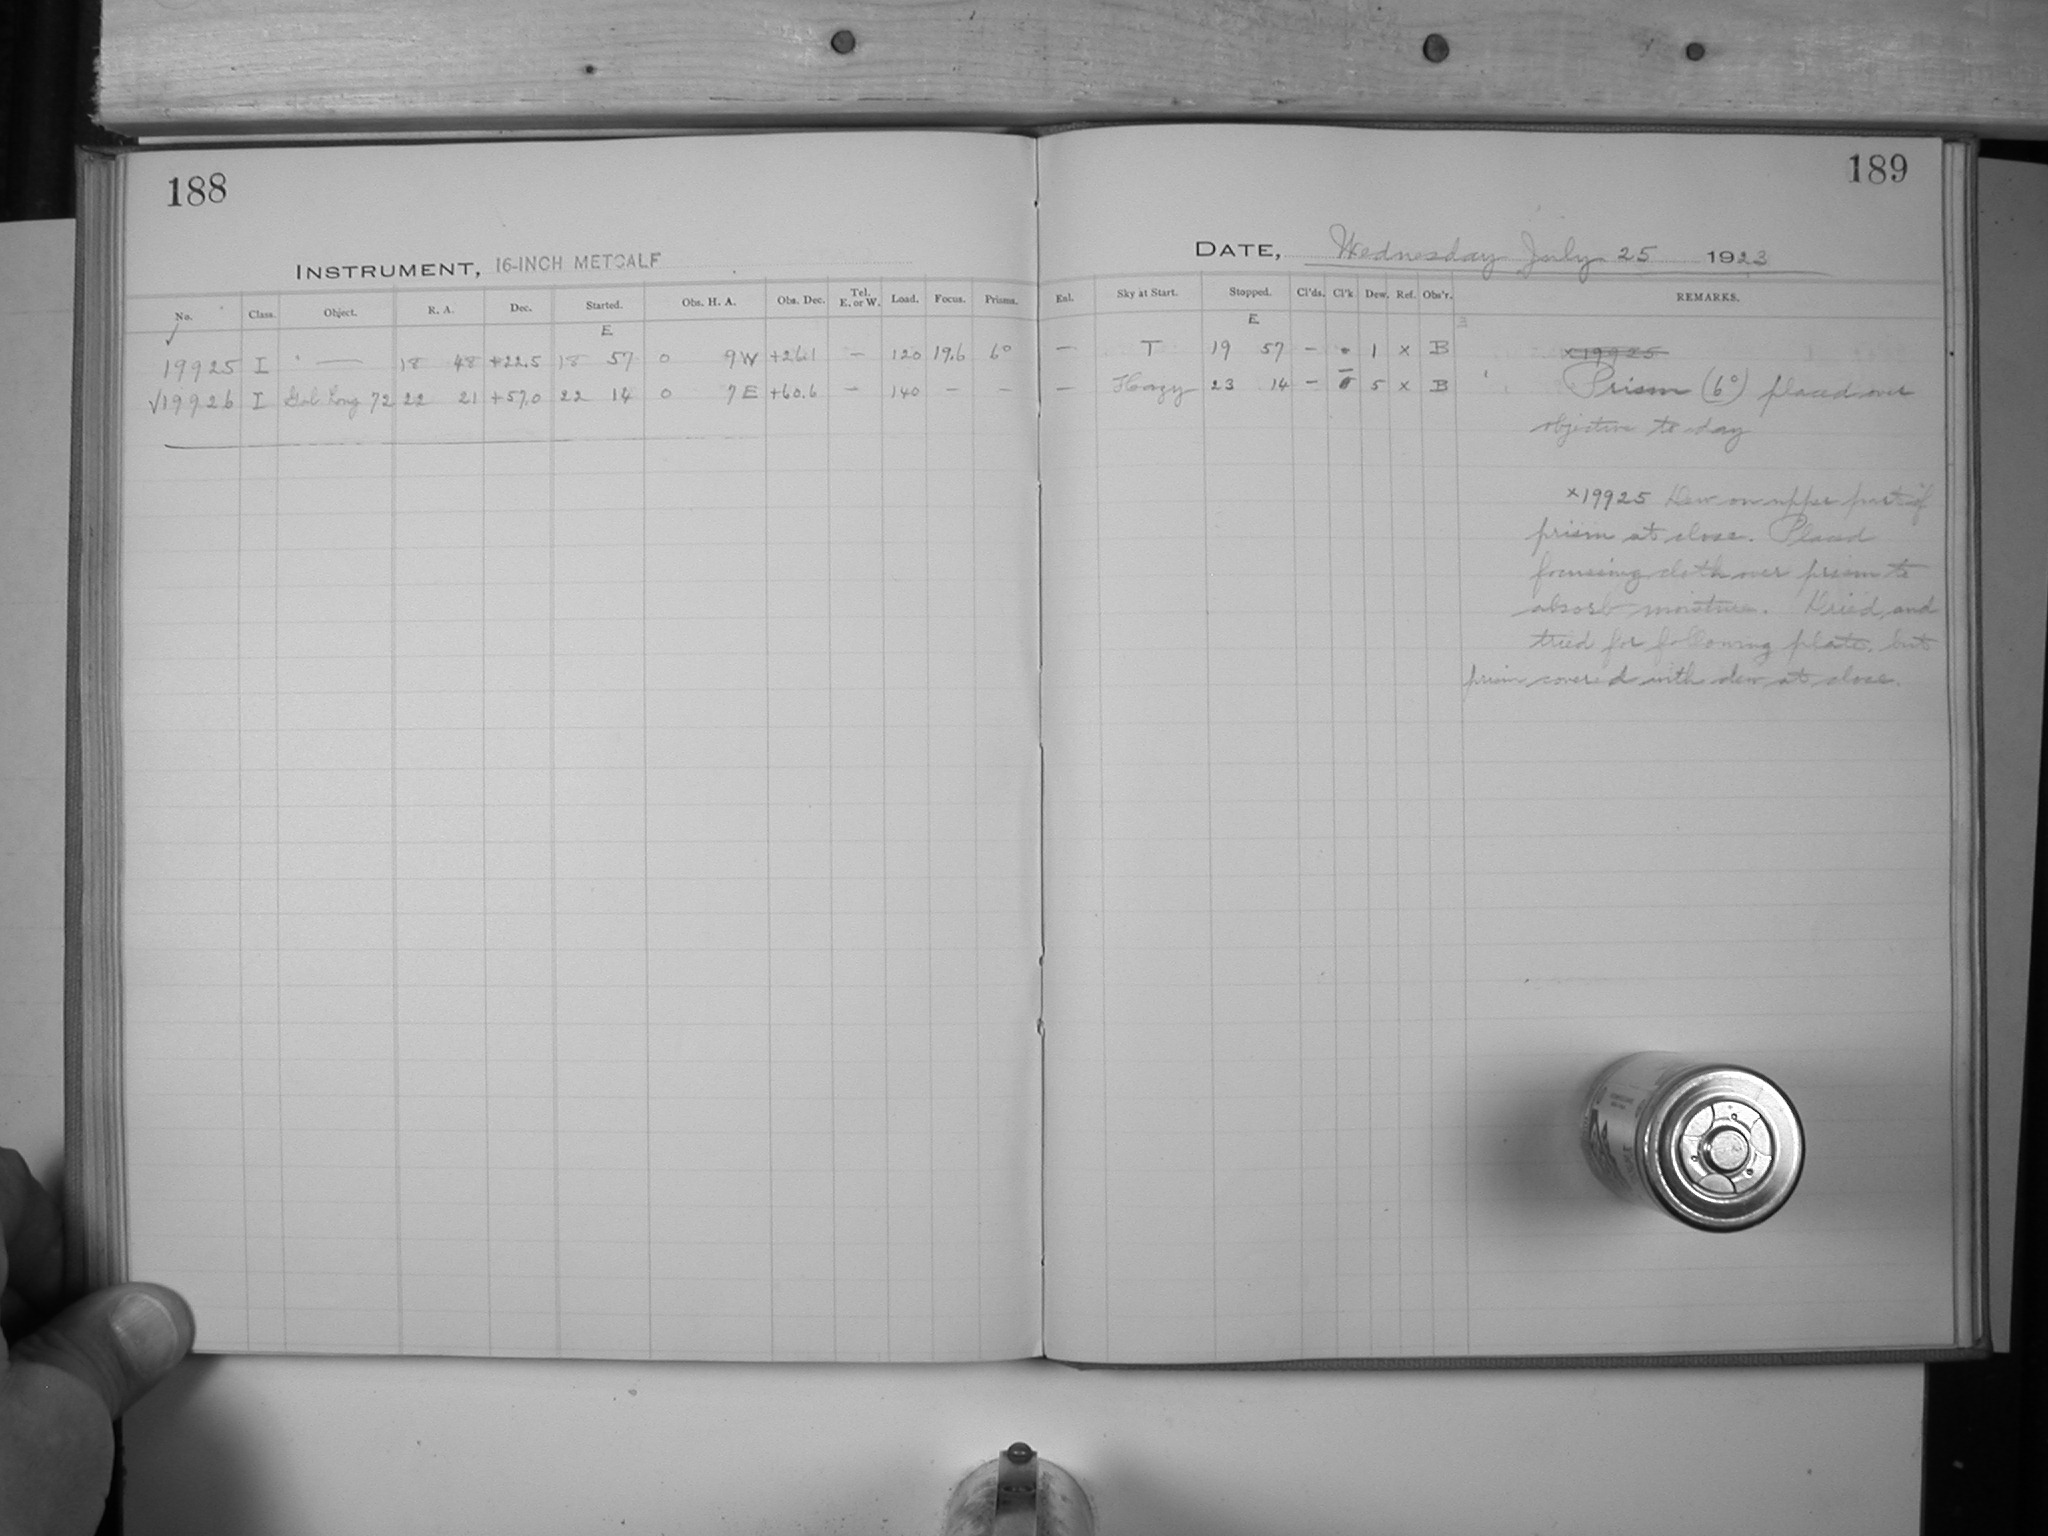 188
189
INSTRUMENT, 16-INCH METCALF
DATE, Wednesday July 25 1923
No. Class. Object. R. A. Dec. Started. Obs. H. A. Obs. Dec. Tel. E. or W. Load. Focus. Prisms. Enl. Sky at Start. Stopped. Cl'ds. Cl'k. Dew. Ref. Obs'r. REMARKS.
✓ E E
19925 I — 18 48 +22.5 18 57 0 9W +26.1 — 120 19.6 6° — T 19 57 — 1 x B x19925
√19926 I Gal Long 72 22 21 +57.0 22 14 0 7E +60.6 — 140 — — — Hazy 23 14 — 5 x B Prism (6°) placed over
objective to day
x19925 Dew on upper part of
prism at close. Placed
focussing cloth over prism to
absorb moisture. Dried, and
tried for following plate, but
prism covered with dew at close.